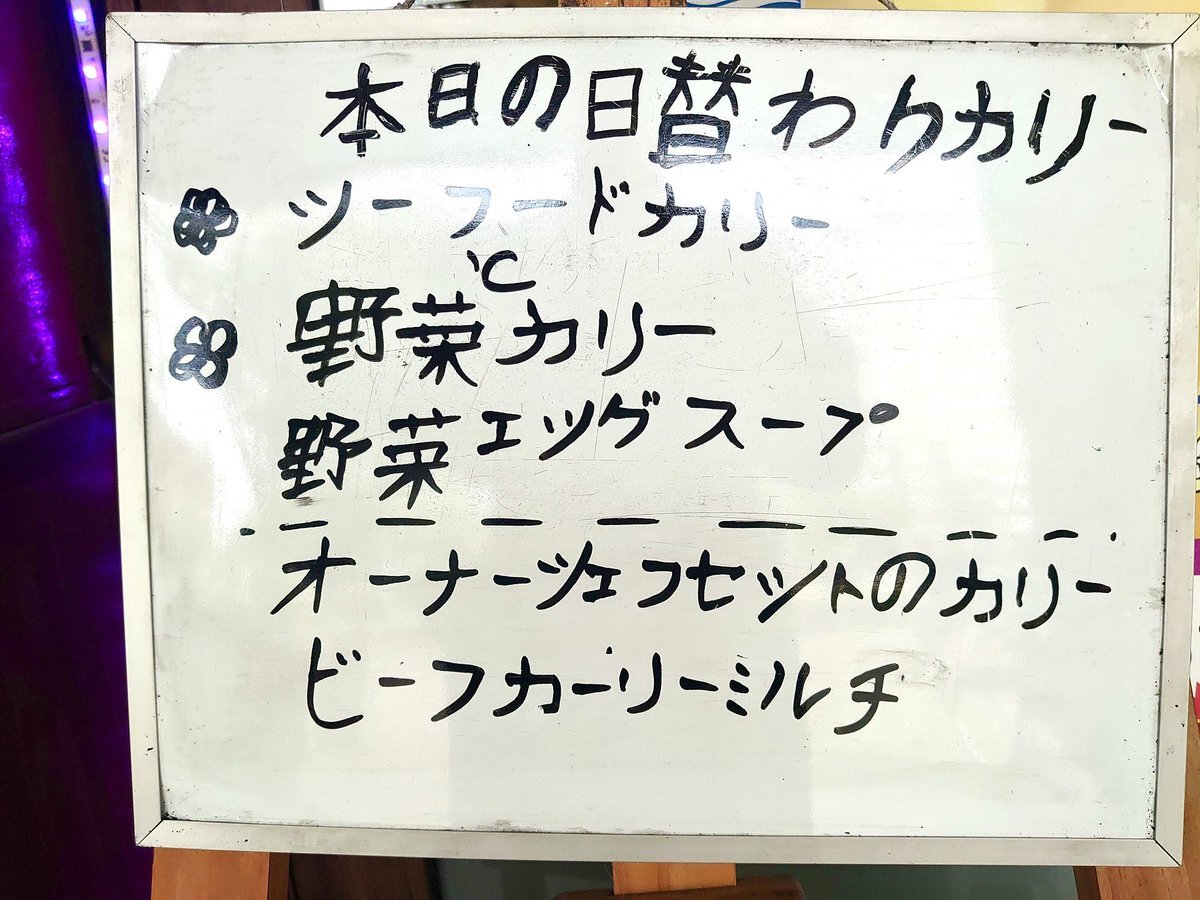 本日の日替わりカリー
ツーフードカリー
と
野菜カリー
野菜エッグスープ
オーナーツェフセットのカリー
ビーフカーリーミルチ